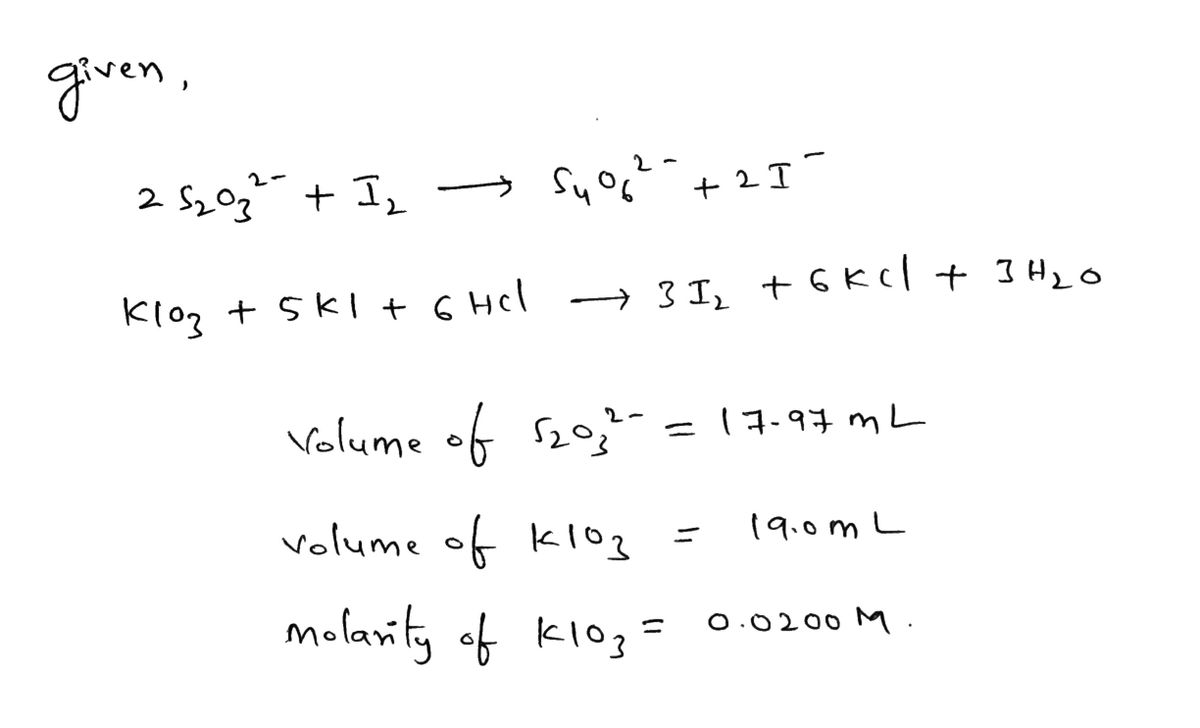 given,
2 S₂O₃²⁻ + I₂ ⟶ S₄O₆²⁻ + 2I⁻
KIO₃ + 5KI + 6HCl ⟶ 3I₂ + 6KCl + 3H₂O
Volume of S₂O₃²⁻ = 17.97 mL
volume of KIO₃ = 19.0 mL
molarity of KIO₃ = 0.0200 M.